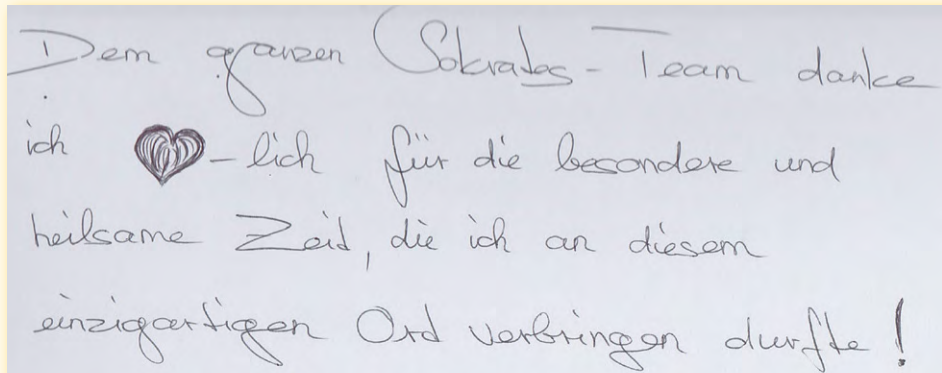 Dem ganzen Sokrates-Team danke
ich ♥-lich für die besondere und
heilsame Zeit, die ich an diesem
einzigartigen Ort verbringen durfte!